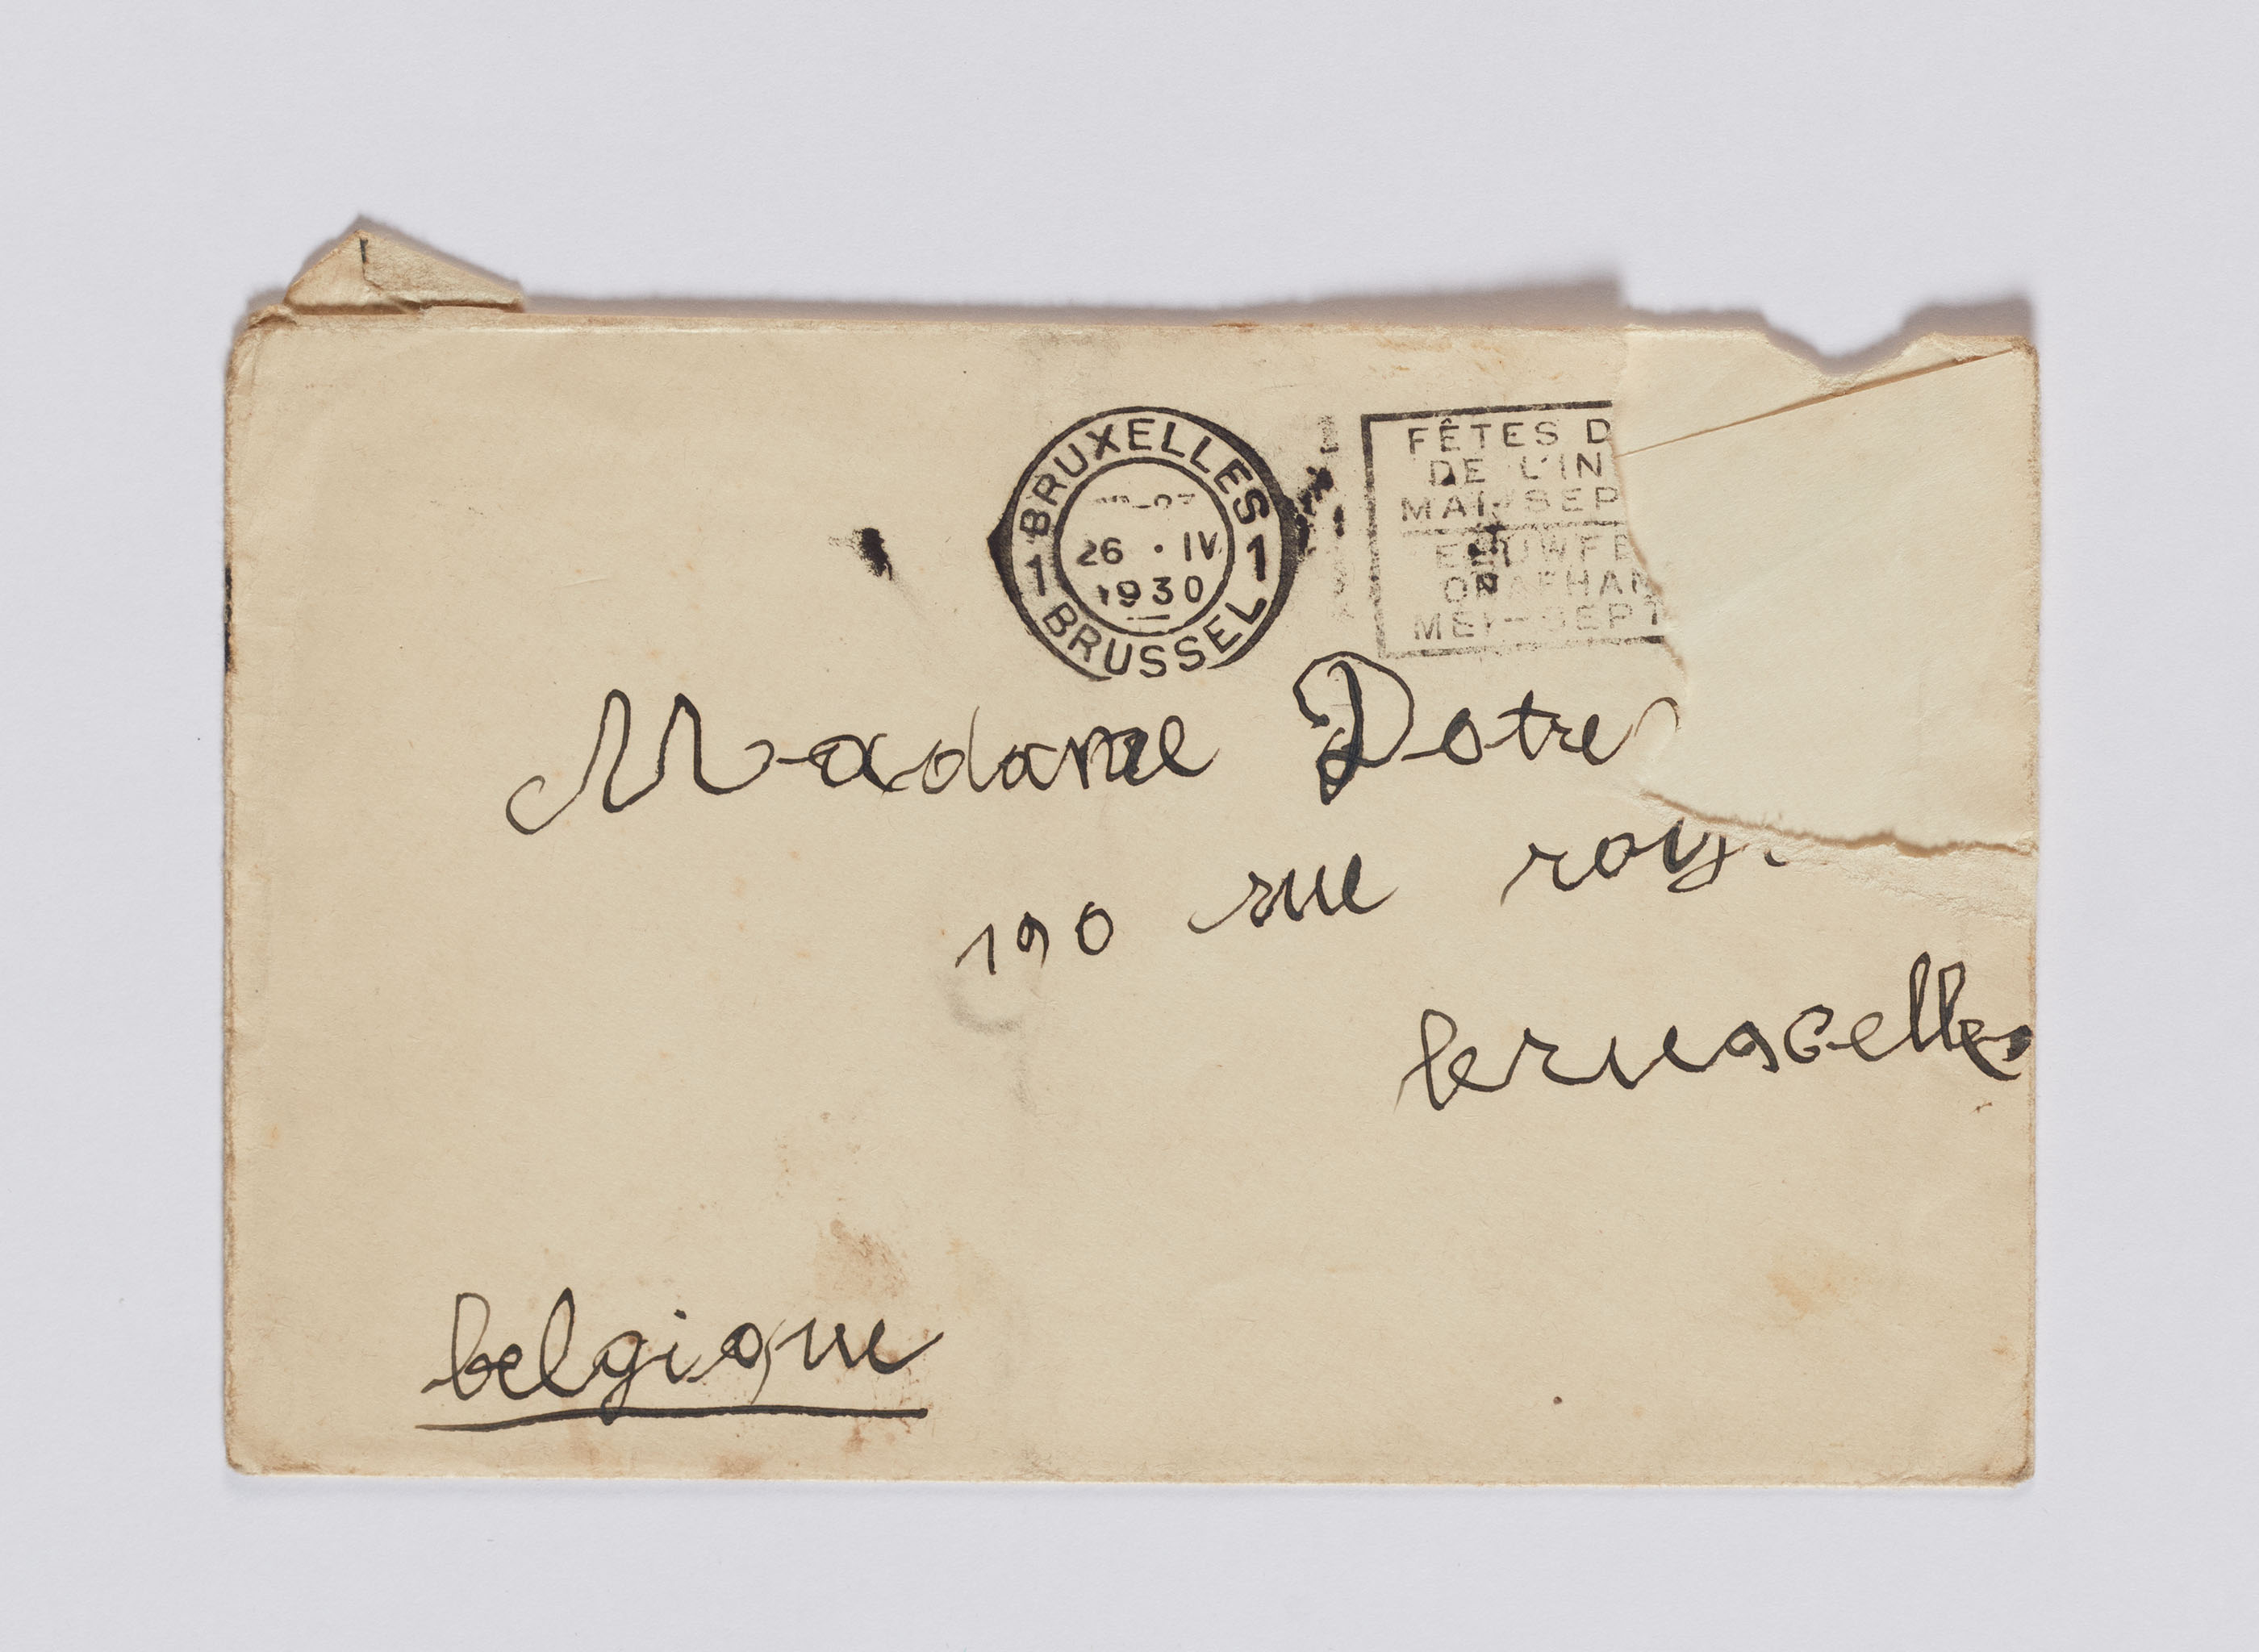 BRUXELLES
1 26 · IV 1
1930
BRUSSEL
FÊTES D
DE L'IN
MAI-SEP
EEUWFE
ONAFHAN
MEI-SEPT
Madame Dotre
190 rue roy
bruxcelles
belgique